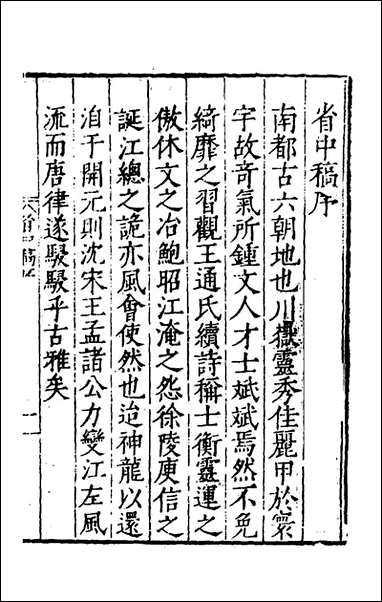 省中稿序
南都古六朝地也川嶽靈秀佳麗甲於寰
宇故奇氣所鍾文人才士斌斌焉然不免
綺靡之習觀王通氏續詩稱士衡靈運之
傲休文之冶鮑昭江淹之怨徐陵庾信之
誕江總之詭亦風會使然也迨神龍以還
洎于開元則沈宋王孟諸公力變江左風
流而唐律遂駸駸乎古雅矣